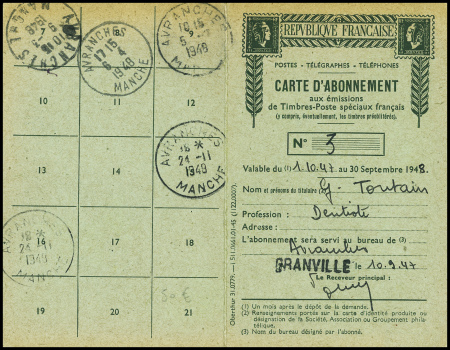 AVRANCHES
MANCHE
AVRANCHES
17 15
5 - 4
1948
MANCHE
AVRANCHES
16 15
1948
10
11
12
13
14
15
AVRANCHES
18 *
24 - 11
1949
MANCHE
AVRANCHES
16
17
18
18 *
24
1949
MANCHE
19
20
21
50 €
Oberthur
RÉPUBLIQUE FRANÇAISE
POSTES - TÉLÉGRAPHES - TÉLÉPHONES
CARTE D'ABONNEMENT
aux émissions
de Timbres-Poste spéciaux français
(y compris, éventuellement, les timbres préoblitérés).
N° 3
Valable du (1) 1.10.47 au 30 Septembre 1948.
Nom et prénoms du titulaire (2) G. Toutain
Profession : Dentiste
Adresse :
L'abonnement sera servi au bureau de (3)
Avranches
GRANVILLE le 10.9.47
Le Receveur principal :
(1) Un mois après le dépôt de la demande.
(2) Renseignements portés sur la carte d'identité produite ou
désignation de la Société, Association ou Groupement phila-
télique.
(3) Nom du bureau désigné par l'abonné.